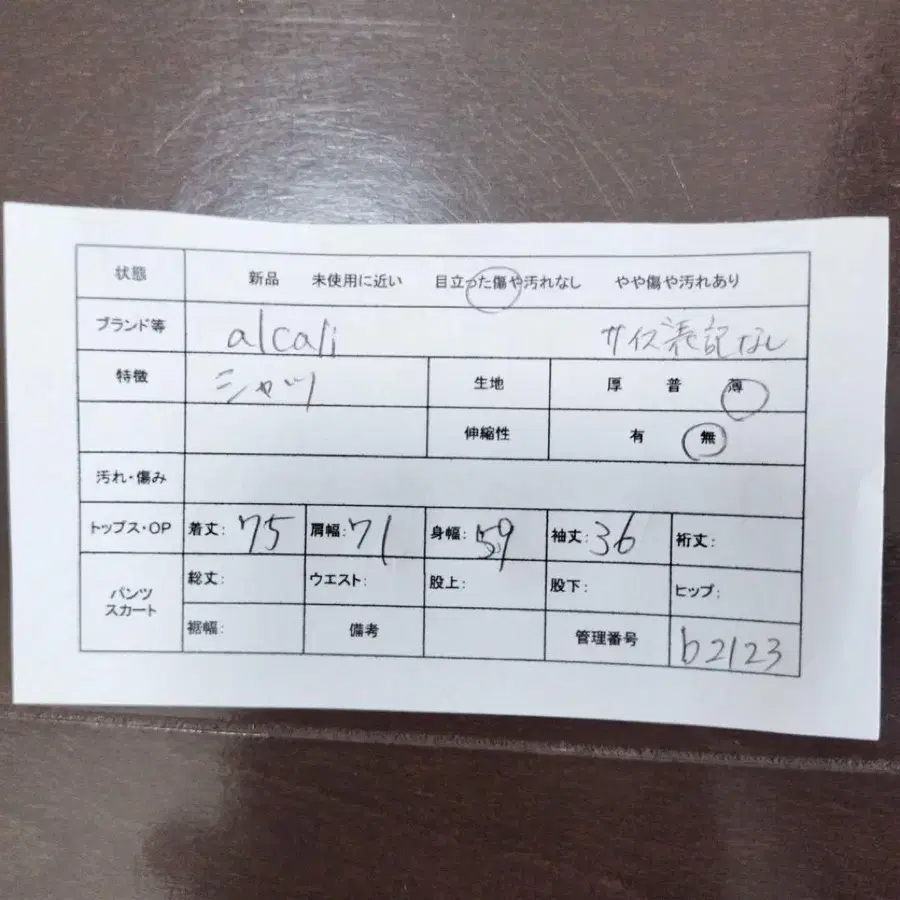 状態 新品 未使用に近い 目立った傷や汚れなし やや傷や汚れあり
ブランド等 alcali サイズ表記なし
特徴 シャツ 生地 厚 普 薄
伸縮性 有 無
汚れ・傷み
トップス・OP 着丈: 75 肩幅: 71 身幅: 59 袖丈: 36 裄丈:
パンツ スカート 総丈: ウエスト: 股上: 股下: ヒップ:
裾幅: 備考 管理番号 b2123